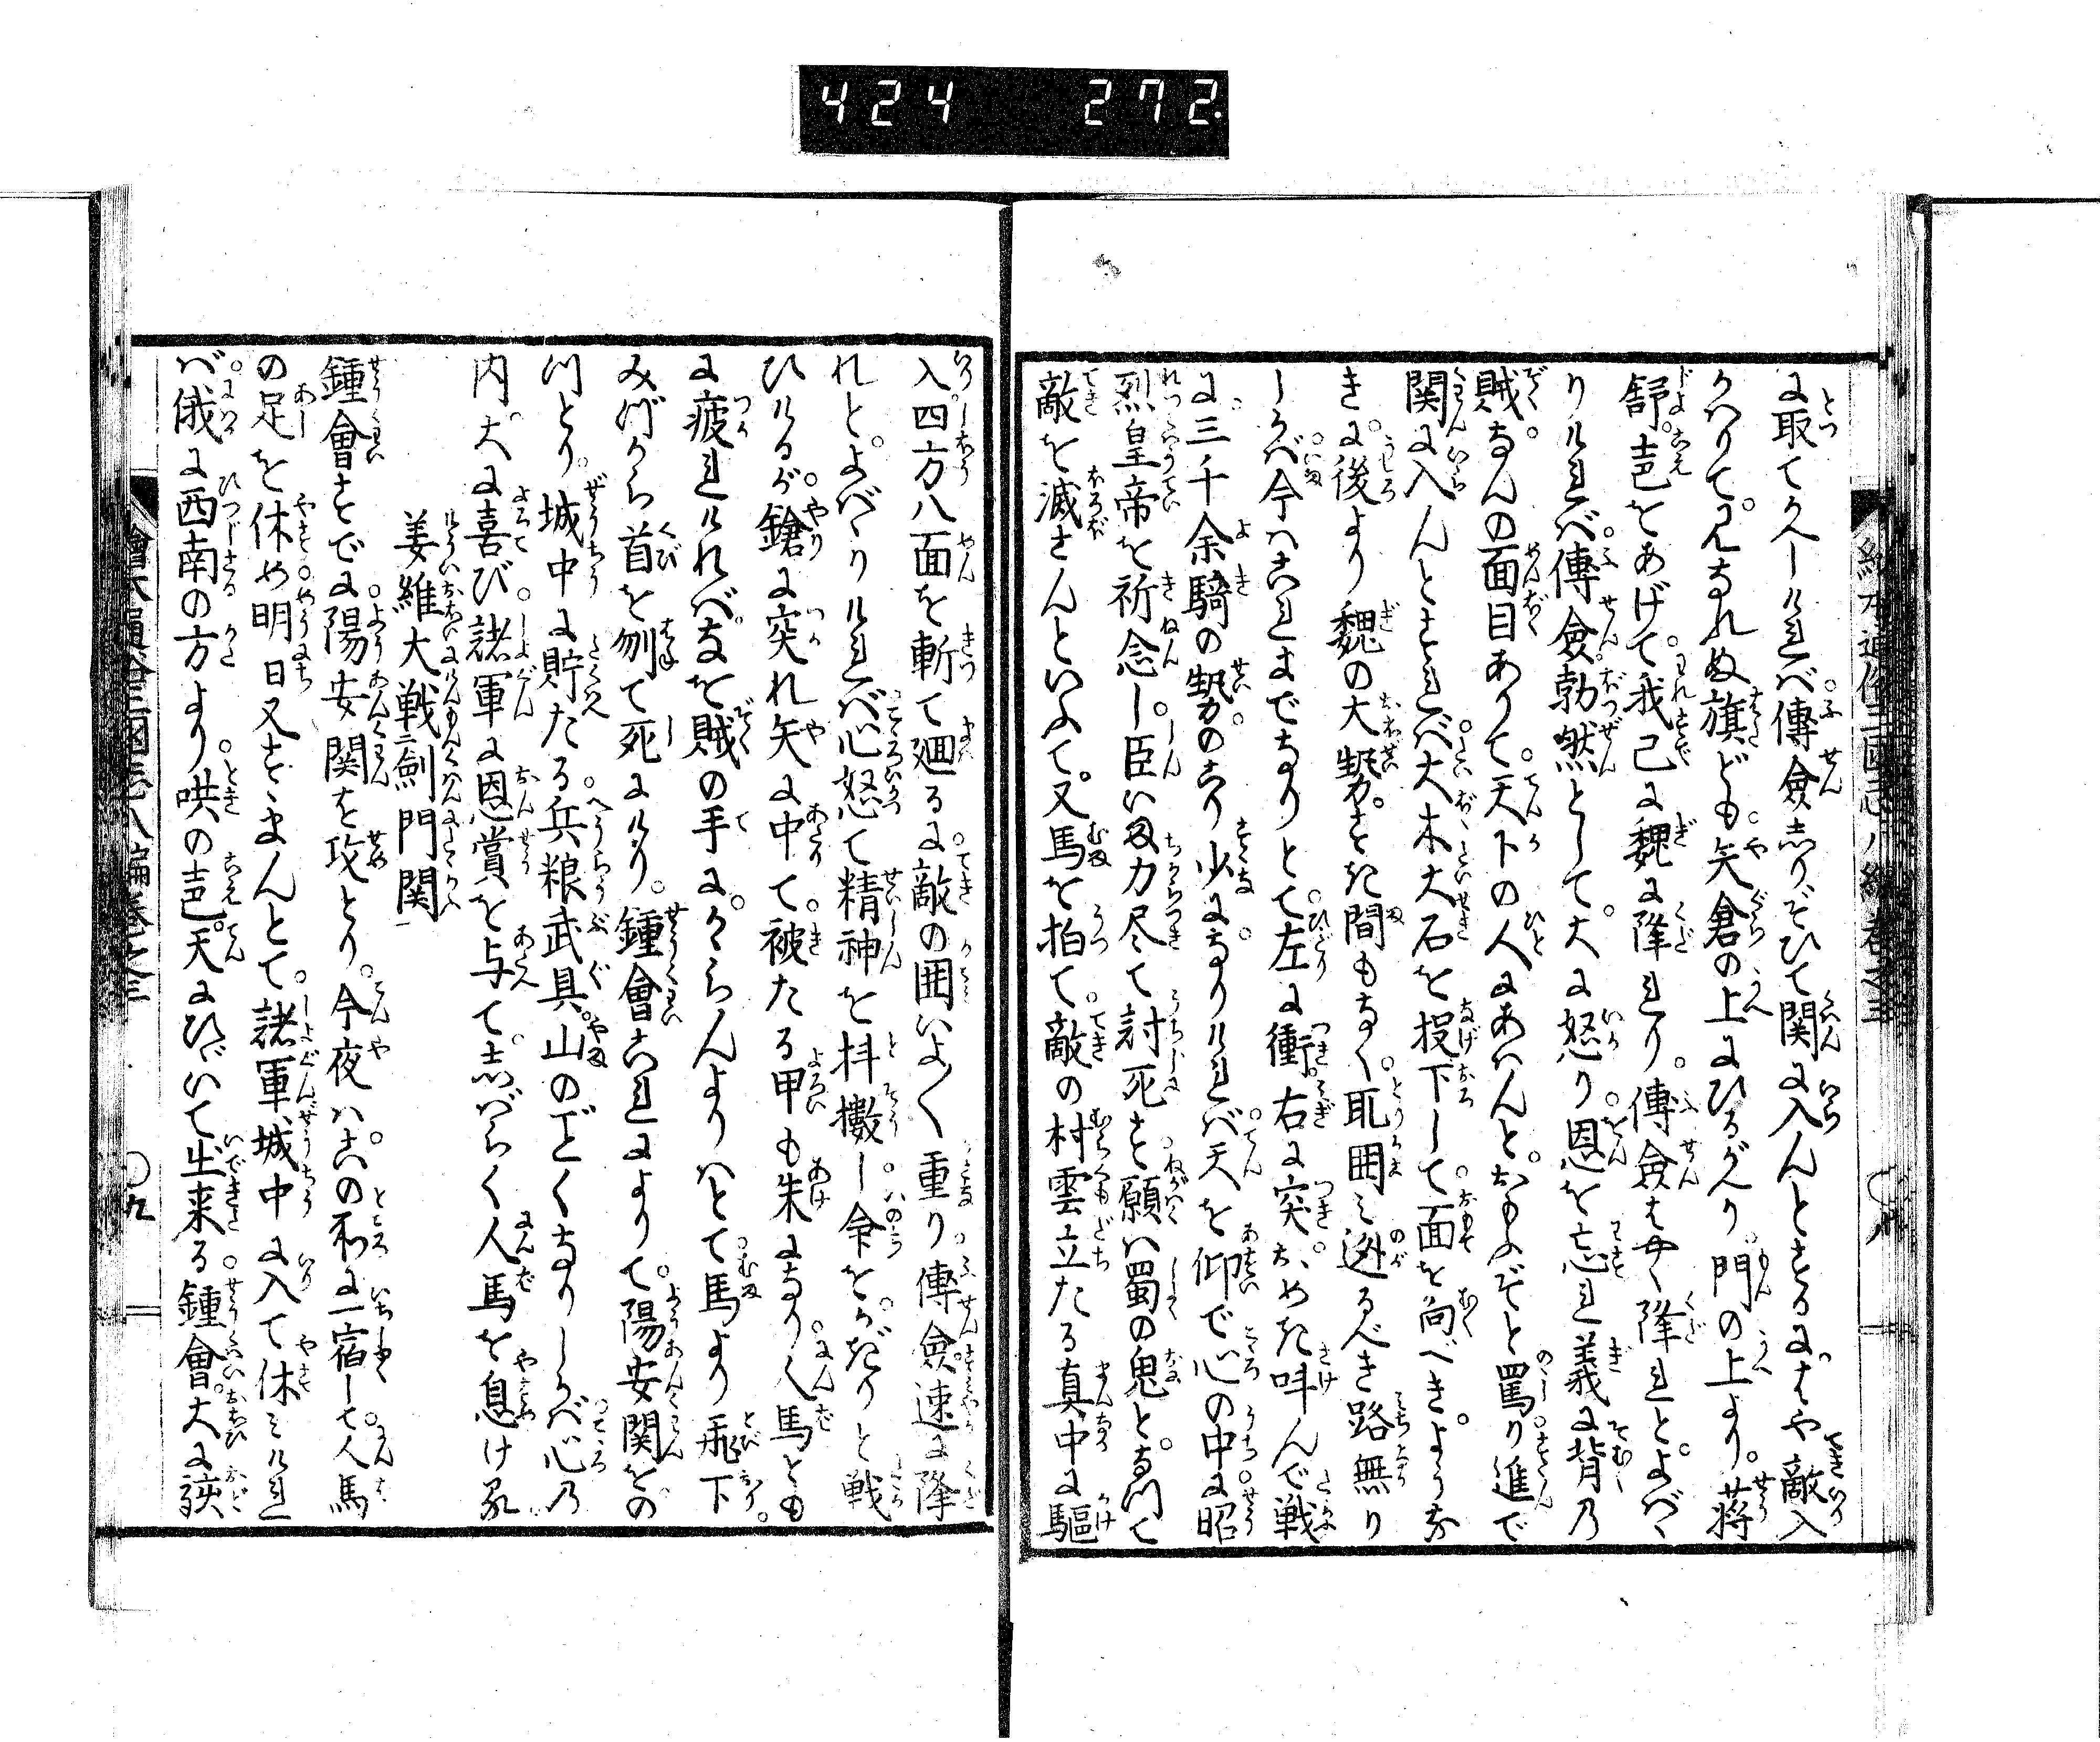 424 272.
に取てかへしければ傅僉しりぞひて関に入んとするにはや敵入
かはりて見なれぬ旗ども矢倉の上にひるがへり門の上より蒋
舒声をあげて我已に魏に降れり傅僉も早く降れとよばゝ
りければ傅僉勃然として大に怒り恩を忘れ義に背の
賊なんの面目ありて天下の人にあはんとおもふぞと罵り進で
関に入んとすれば大木大石を投下して面を向べきやうな
き に後より魏の大勢すき間もなく取囲み遁るべき路無り
しかば今はこれまでなりとて左に衝右に突おめき叫んで戦
に三千余騎の勢のこり少になりければ天を仰で心の中に昭
烈皇帝を祈念し臣い力尽て討死す願は蜀の鬼となつて
敵を滅さんといふて又馬を拍て敵の村雲立たる真中に駆
入四方八面を斬て廻るに敵の囲いよ〱重り傅僉速に降
れとよばゝりければ心怒て精神を抖擻し命をかぎりと戦
ひけるが鎗に突れ矢に中て被たる甲も朱になり人馬とも
に疲れければなを賊の手にかゝらんよりはとて馬より飛下
みづから首を刎て死にけり鍾會これによりて陽安関をの
つとり城中に貯たる兵粮武具山のごとくなりしかば心の
内大に喜び諸軍に恩賞を与てしばらく人馬を息けり
姜維大戦二剣門関一
鍾會すでに陽安関を攻とり今夜はこの所に一宿して人馬
の足を休め明日又すゝまんとて諸軍城中に入て休みけれ
ば俄に西南の方より哄の声天にひゞいて出来る鍾會大に駭